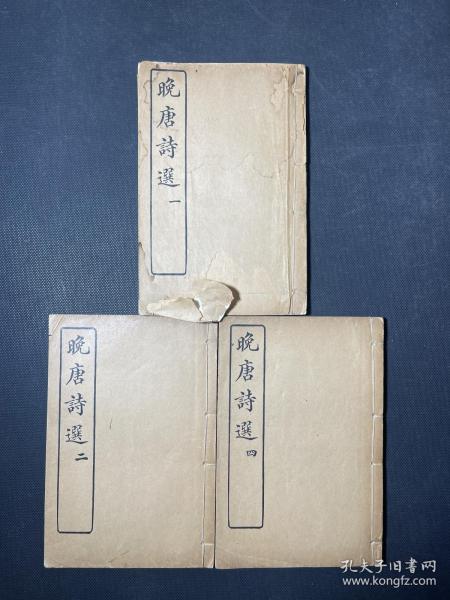 晚唐詩選 一
晚唐詩選 二
晚唐詩選 四
孔夫子旧书网
www.kongfz.com